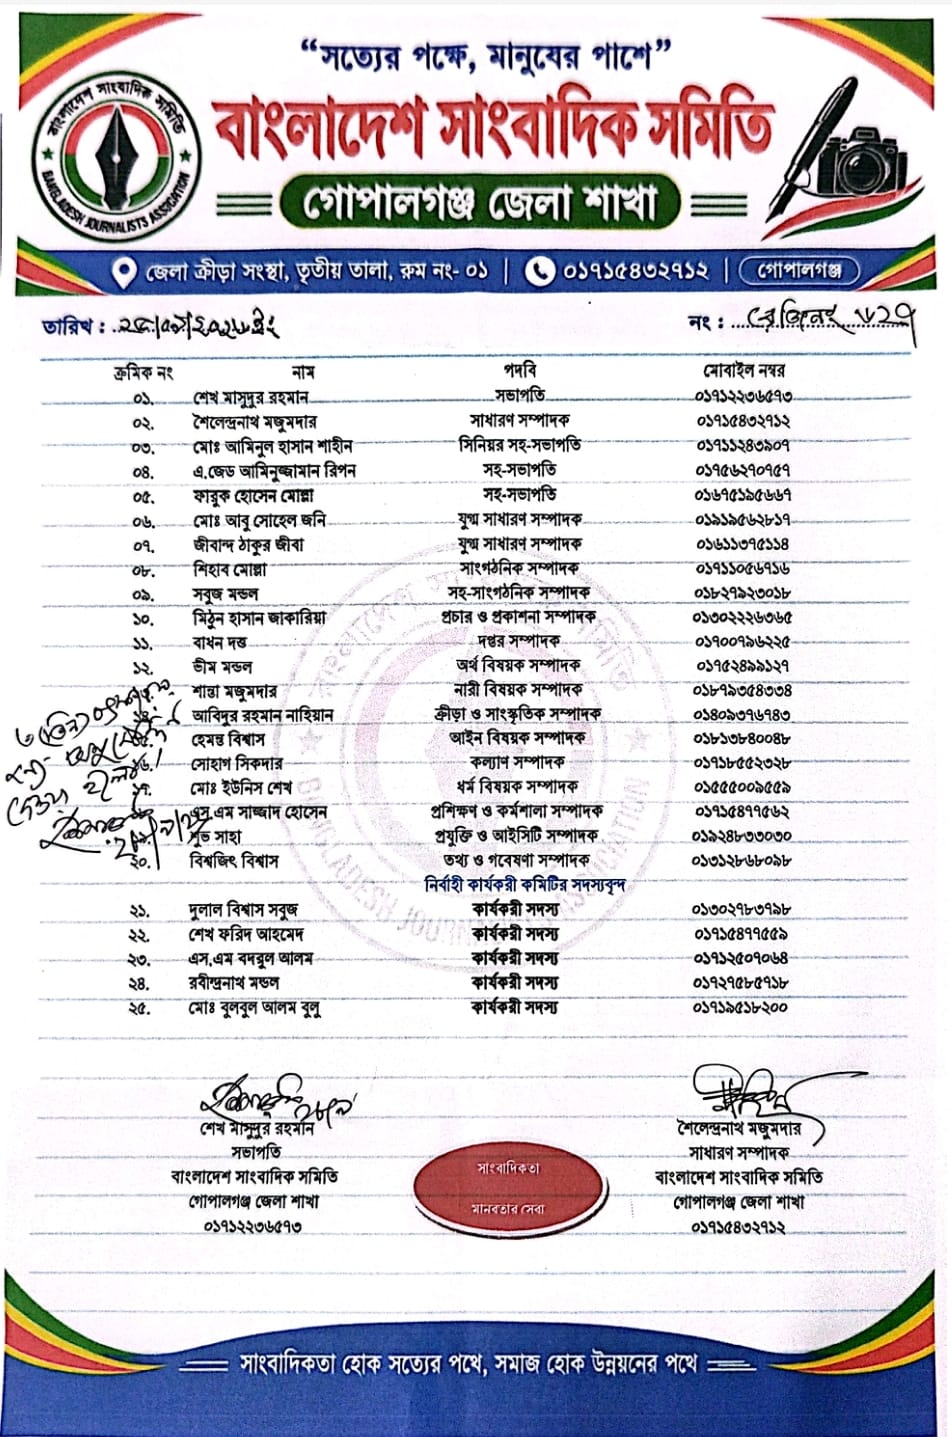 “সত্যের পক্ষে, মানুষের পাশে”
বাংলাদেশ সাংবাদিক সমিতি
গোপালগঞ্জ জেলা শাখা
বাংলাদেশ সাংবাদিক সমিতি
BANGLADESH JOURNALISTS ASSOCIATION
জেলা ক্রীড়া সংস্থা, তৃতীয় তালা, রুম নং- ০১ | ০১৭১৫৪৩২৭১২ | গোপালগঞ্জ
তারিখ :
নং : রেজিনং ৬২৭
ক্রমিক নং নাম পদবি মোবাইল নম্বর
০১. শেখ মাসুদুর রহমান সভাপতি ০১৭১২২৩৬৫৭৩
০২. শৈলেন্দ্রনাথ মজুমদার সাধারণ সম্পাদক ০১৭১৫৪৩২৭১২
০৩. মোঃ আমিনুল হাসান শাহীন সিনিয়র সহ-সভাপতি ০১৭১১২৪৩৯০৭
০৪. এ.জেড আমিনুজ্জামান রিপন সহ-সভাপতি ০১৭৫৬২৭০৭৫৭
০৫. ফারুক হোসেন মোল্লা সহ-সভাপতি ০১৬৭৫১৯৫৬৬৭
০৬. মোঃ আবু সোহেল জনি যুগ্ম সাধারণ সম্পাদক ০১৯১৯৫৬২৮১৭
০৭. জীবান্দ ঠাকুর জীবা যুগ্ম সাধারণ সম্পাদক ০১৬১১৩৭৫১১৪
০৮. শিহাব মোল্লা সাংগঠনিক সম্পাদক ০১৭১১০৫৬৭১৬
০৯. সবুজ মন্ডল সহ-সাংগঠনিক সম্পাদক ০১৮২৭৯২৩০১৮
১০. মিঠুন হাসান জাকারিয়া প্রচার ও প্রকাশনা সম্পাদক ০১৩০২২২৬৩৬৫
১১. বাধন দত্ত দপ্তর সম্পাদক ০১৭০০৭৯৬২২৫
১২. ভীম মন্ডল অর্থ বিষয়ক সম্পাদক ০১৭৫২৪৯৯১২৭
শান্তা মজুমদার নারী বিষয়ক সম্পাদক ০১৮৭৯৩৫৪৩৩৪
আবিদুর রহমান নাহিয়ান ক্রীড়া ও সাংস্কৃতিক সম্পাদক ০১৪০৯৩৭৬৭৪৩
হেমন্ত বিশ্বাস আইন বিষয়ক সম্পাদক ০১৮১৩৮৪০০৪৮
সোহাগ সিকদার কল্যাণ সম্পাদক ০১৭১৮৫৫২৩২৮
মোঃ ইউনিস শেখ ধর্ম বিষয়ক সম্পাদক ০১৫৫৫০০৯৫৫৯
এস.এম সাজ্জাদ হোসেন প্রশিক্ষণ ও কর্মশালা সম্পাদক ০১৭১৫৪৭৭৫৬২
শুভ সাহা প্রযুক্তি ও আইসিটি সম্পাদক ০১৯২৪৮৩৩০৩০
২০. বিশ্বজিৎ বিশ্বাস তথ্য ও গবেষণা সম্পাদক ০১৩১২৮৬৮০৯৮
নির্বাহী কার্যকরী কমিটির সদস্যবৃন্দ
২১. দুলাল বিশ্বাস সবুজ কার্যকরী সদস্য ০১৩০২৭৮৩৭৯৮
২২. শেখ ফরিদ আহমেদ কার্যকরী সদস্য ০১৭১৫৪৭৭৫৫৯
২৩. এস,এম বদরুল আলম কার্যকরী সদস্য ০১৭১২৫০৭০৬৪
২৪. রবীন্দ্রনাথ মন্ডল কার্যকরী সদস্য ০১৭২৭৫৮৫৭১৮
২৫. মোঃ বুলবুল আলম বুলু কার্যকরী সদস্য ০১৭১৯৫১৮২০০
শেখ মাসুদুর রহমান
সভাপতি
বাংলাদেশ সাংবাদিক সমিতি
গোপালগঞ্জ জেলা শাখা
০১৭১২২৩৬৫৭৩
সাংবাদিকতা
মানবতার সেবা
শৈলেন্দ্রনাথ মজুমদার
সাধারণ সম্পাদক
বাংলাদেশ সাংবাদিক সমিতি
গোপালগঞ্জ জেলা শাখা
০১৭১৫৪৩২৭১২
সাংবাদিকতা হোক সত্যের পথে, সমাজ হোক উন্নয়নের পথে